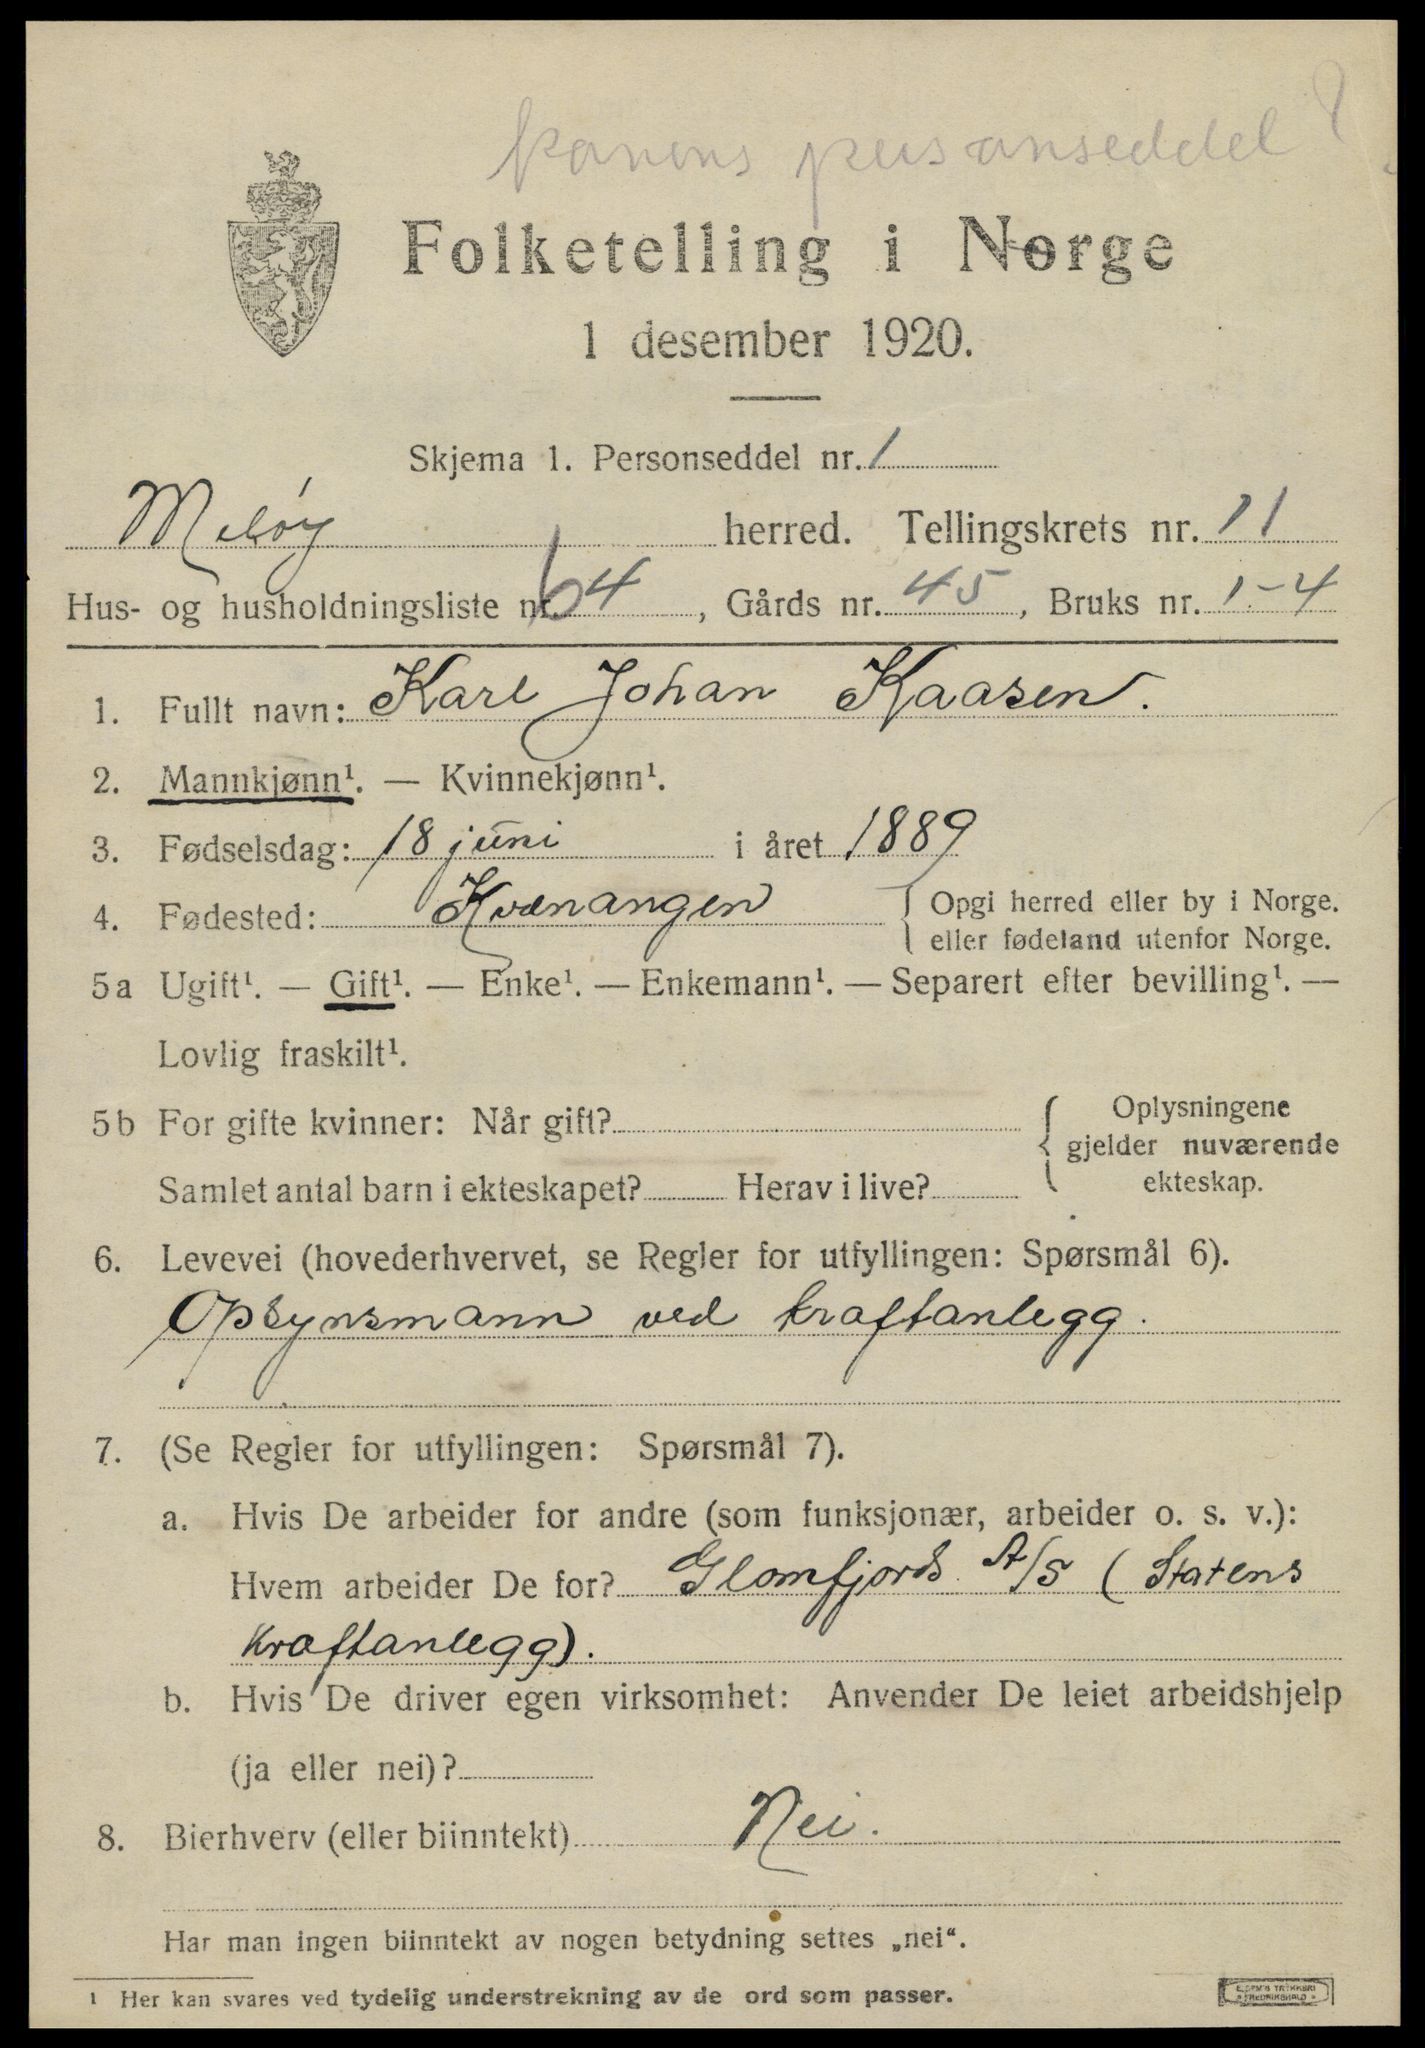 konens personseddel?
Folketelling i Norge
1 desember 1920.
Skjema 1. Personseddel nr. 1
Meløy herred. Tellingskrets nr. 11
Hus- og husholdningsliste nr. 64, Gårds nr. 45, Bruks nr. 1-4
1. Fullt navn: Karl Johan Kaasen.
2. Mannkjønn¹. — Kvinnekjønn¹.
3. Fødselsdag: 18 juni i året 1889
4. Fødested: Kvænangen { Opgi herred eller by i Norge.
eller fødeland utenfor Norge.
5a Ugift¹. — Gift¹. — Enke¹. — Enkemann¹. — Separert efter bevilling¹. —
Lovlig fraskilt¹.
5b For gifte kvinner: Når gift? { Oplysningene
gjelder nuværende
Samlet antal barn i ekteskapet? Herav i live? ekteskap.
6. Levevei (hovederhvervet, se Regler for utfyllingen: Spørsmål 6).
Opsynsmann ved kraftanlegg.
7. (Se Regler for utfyllingen: Spørsmål 7).
a. Hvis De arbeider for andre (som funksjonær, arbeider o. s. v.):
Hvem arbeider De for? Glomfjords A/S (Statens
kraftanlegg).
b. Hvis De driver egen virksomhet: Anvender De leiet arbeidshjelp
(ja eller nei)?
8. Bierhverv (eller biinntekt) Nei.
Har man ingen biinntekt av nogen betydning settes „nei“.
¹ Her kan svares ved tydelig understrekning av de ord som passer.